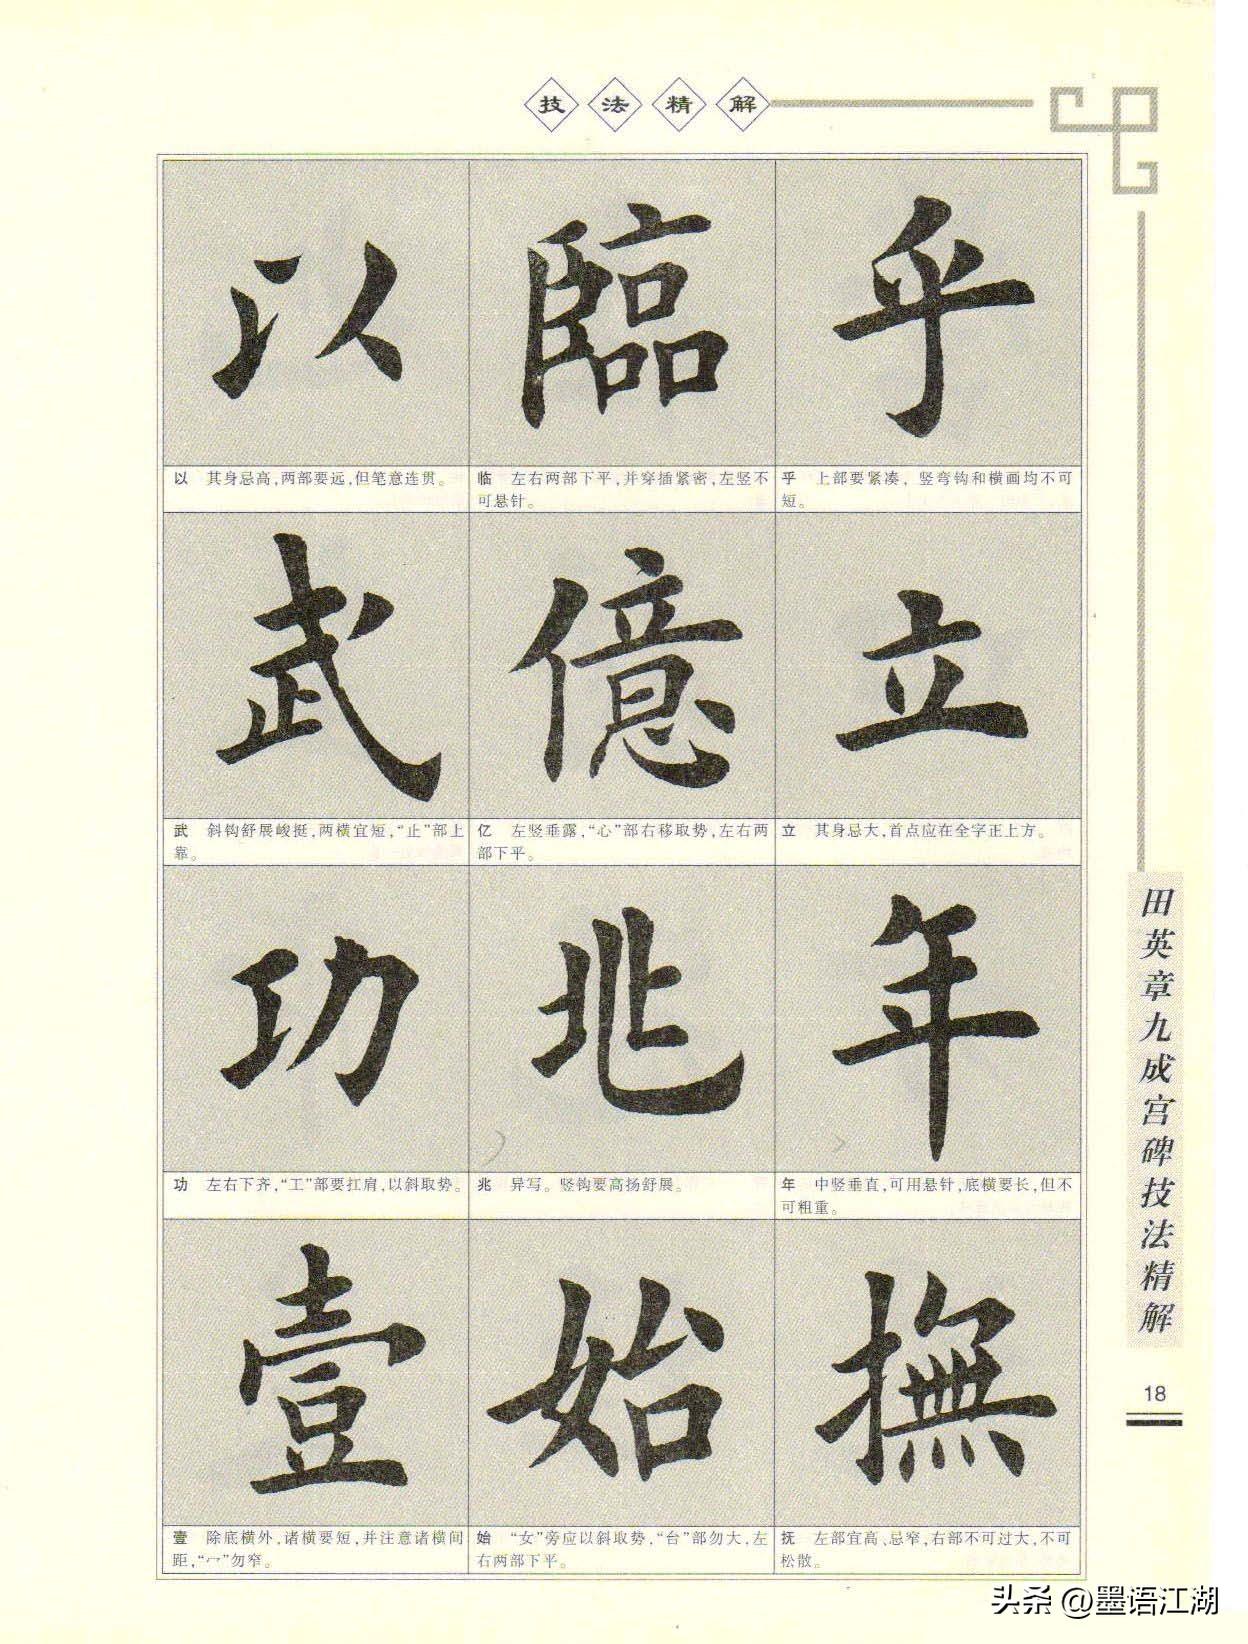 技法精解
乎
臨
以
乎　上部要紧凑，竖弯钩和横画均不可
短。
临　左右两部下平，并穿插紧密，左竖不
可悬针。
以　其身忌高，两部要远，但笔意连贯。
立
億
武
立　其身忌大，首点应在全字正上方。
亿　左竖垂露，“心”部右移取势，左右两
部下平。
武　斜钩舒展峻挺，两横宜短，“止”部上
靠。
年
兆
功
年　中竖垂直，可用悬针，底横要长，但不
可粗重。
兆　异写。竖钩要高扬舒展。
功　左右下齐，“工”部要扛肩，以斜取势。
撫
始
壹
抚　左部宜高、忌窄，右部不可过大，不可
松散。
始　“女”旁应以斜取势，“台”部勿大，左
右两部下平。
壹　除底横外，诸横要短，并注意诸横间
距，“冖”勿窄。
田英章九成宫碑技法精解
18
头条 @墨语江湖